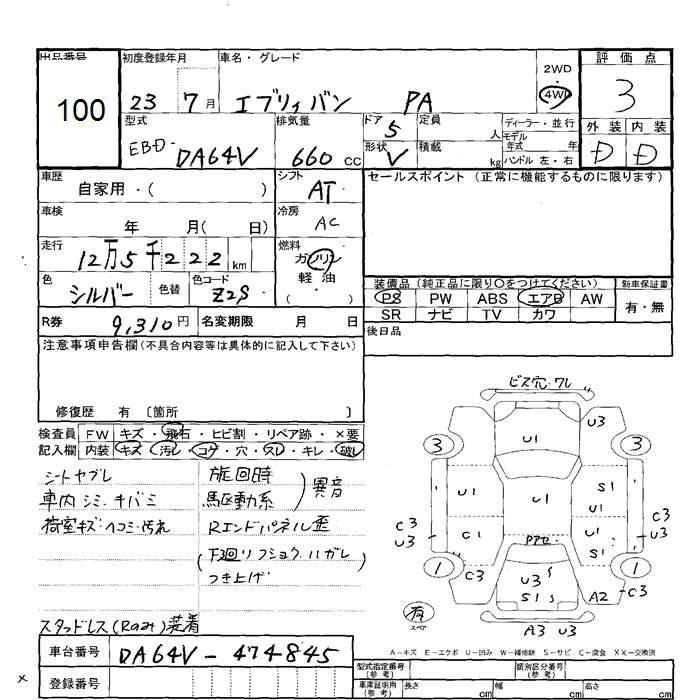 出品番号
100
初度登録年月
23 7月
車名・グレード
エブリィバン PA
2WD
4WD
評価点
3
外装 内装
D D
型式
EBD-DA64V
排気量
660 cc
ドア 5
形状 V
定員 人
積載 kg
ディーラー・並行
モデル年式 年式
ハンドル 左・右
車歴
自家用・( )
シフト
AT
車検
年 月( 日)
冷房
AC
走行
12万5千222km
燃料
ガソリン
軽油
( ・ )
色
シルバー
色替
色コード
Z2S
R券 9,310円
名変期限 月 日
セールスポイント (正常に機能するものに限ります)
装備品 (純正品に限り〇をつけてください)
PS PW ABS エアB AW
SR ナビ TV カワ
新車保証書
有・無
後日品
注意事項申告欄(不具合内容等は具体的に記入して下さい)
修復歴 有 〔箇所 〕
検査員記入欄
FW キズ・飛石・ヒビ割・リペア跡・×要
内装 キズ・汚レ・コゲ・穴・スレ・キレ・破レ
シートヤブレ
車内シミ・キバミ
荷室キズ・ヘコミ・汚れ
旋回時
駆動系
異音
Rエンドパネル歪
(下廻リフショク、ハガレ)
つき上げ
スタッドレス(Rのみ)装着
ビス穴・ワレ
U3
U1
3
3
U1
S1
U1
C1
U1
C3
U3
C3
U3
S1
1
1
C3
U3 S
S1 S
A2
C3
A3 U3
有
スペア
A-キズ E-エクボ U-凹み W-補修跡 S-サビ C-腐食 XX-交換済
車台番号 DA64V-474845
登録番号
型式指定番号
(参考)
類別区分番号
(参考)
車庫証明用
(参考)
長さ cm 幅 cm 高さ cm
×